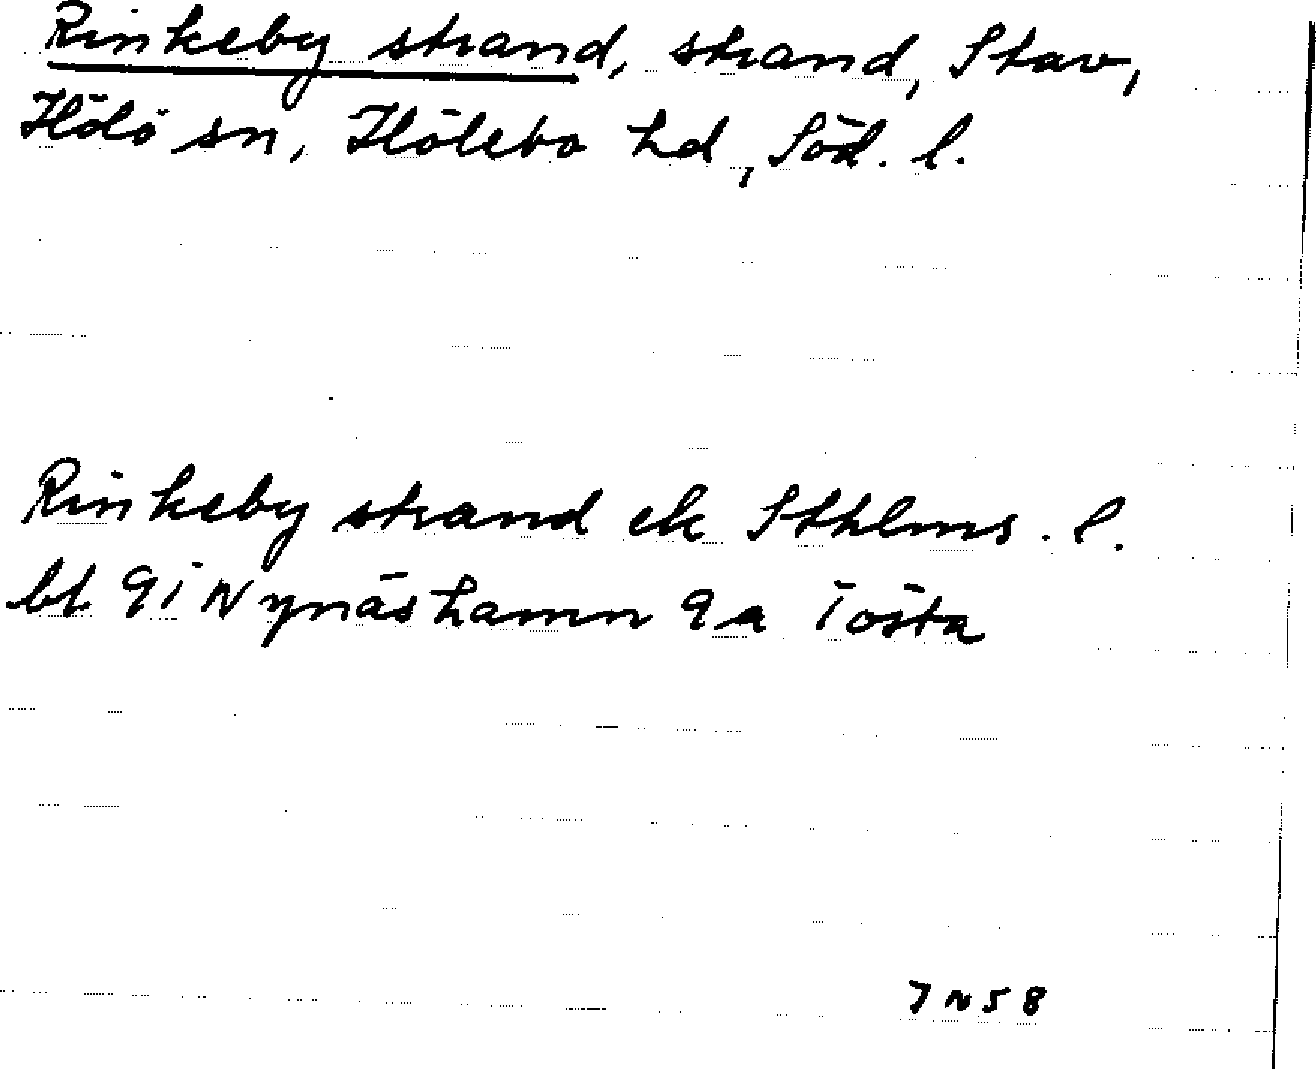 Rinkeby strand, strand, Stav,
Hölö sn, Hölebo hd, Söd. l.
Rinkeby strand ek Sthlms. l.
bl. 9i Nynäshamn 9a i östa
7 N 5 8